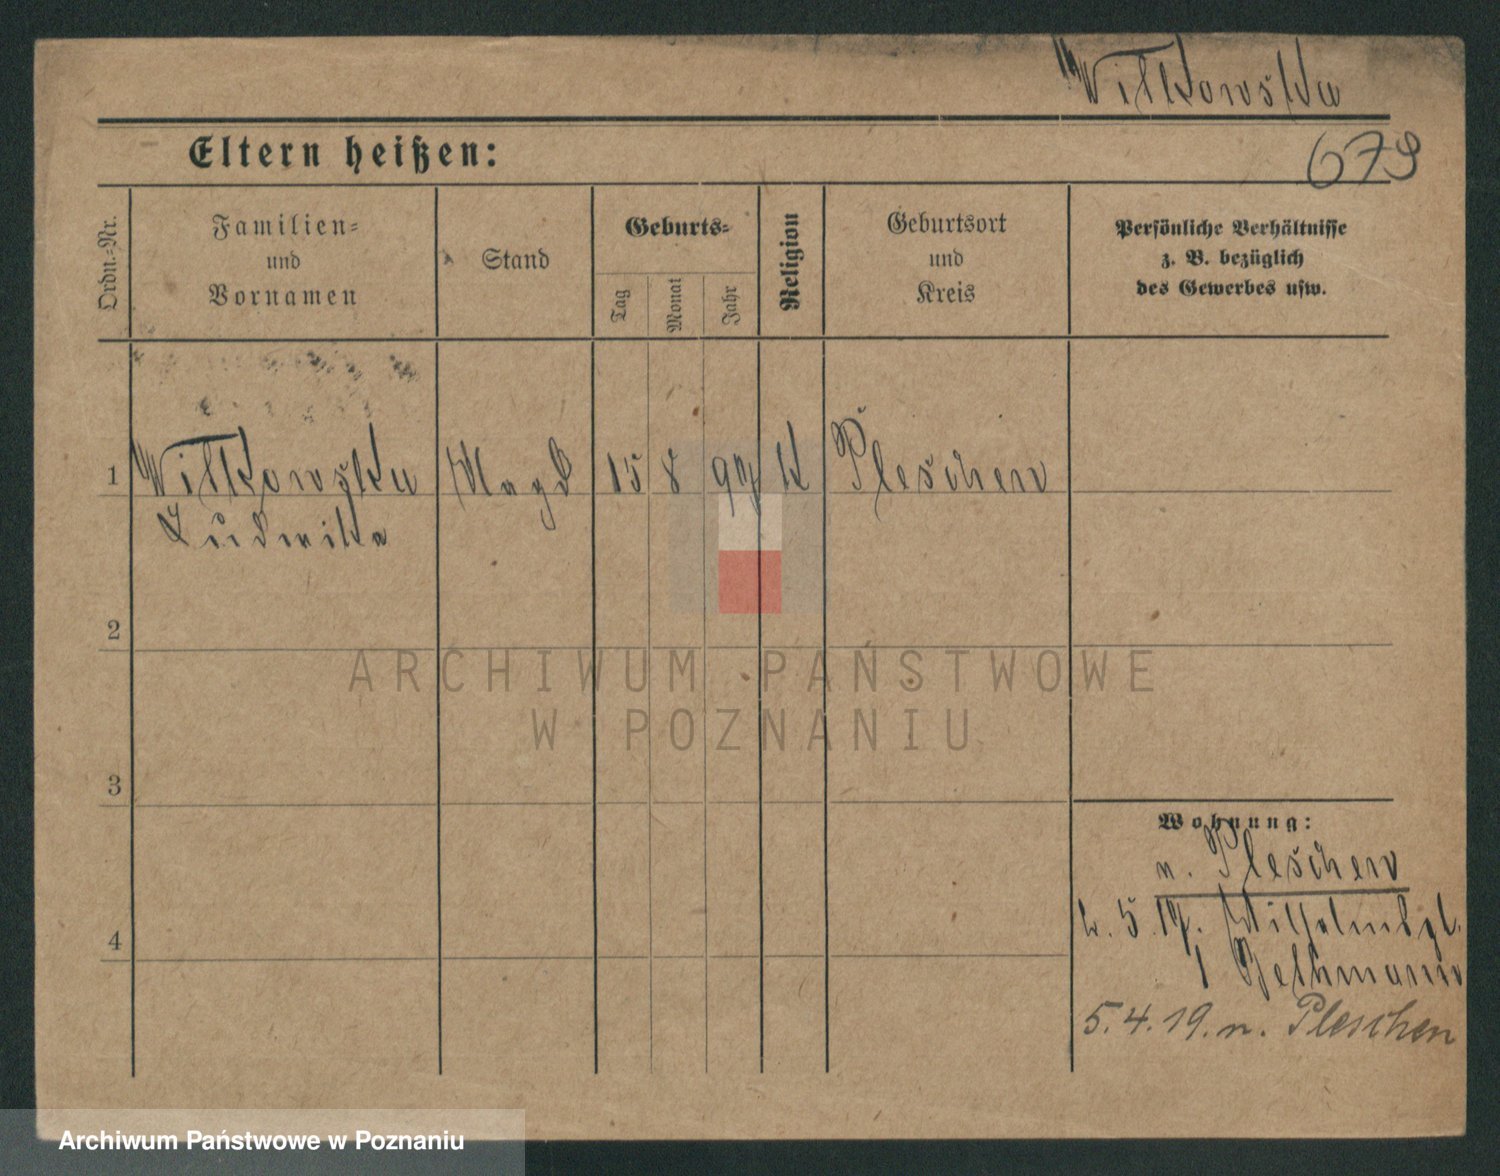 Witkowska
679
Eltern heißen:
Ordn.-Nr.
Familien-
und
Vornamen
Stand
Geburts-
Tag
Monat
Jahr
Religion
Geburtsort
und
Kreis
Persönliche Verhältnisse
z. B. bezüglich
des Gewerbes usw.
1 Witkowska Magd 15 8 97 K Pleschen
Ludwika
2
ARCHIWUM PAŃSTWOWE
W POZNANIU
3
Wohnung:
n. Pleschen
4
5 17.
5.4.19. n. Pleschen
Archiwum Państwowe w Poznaniu